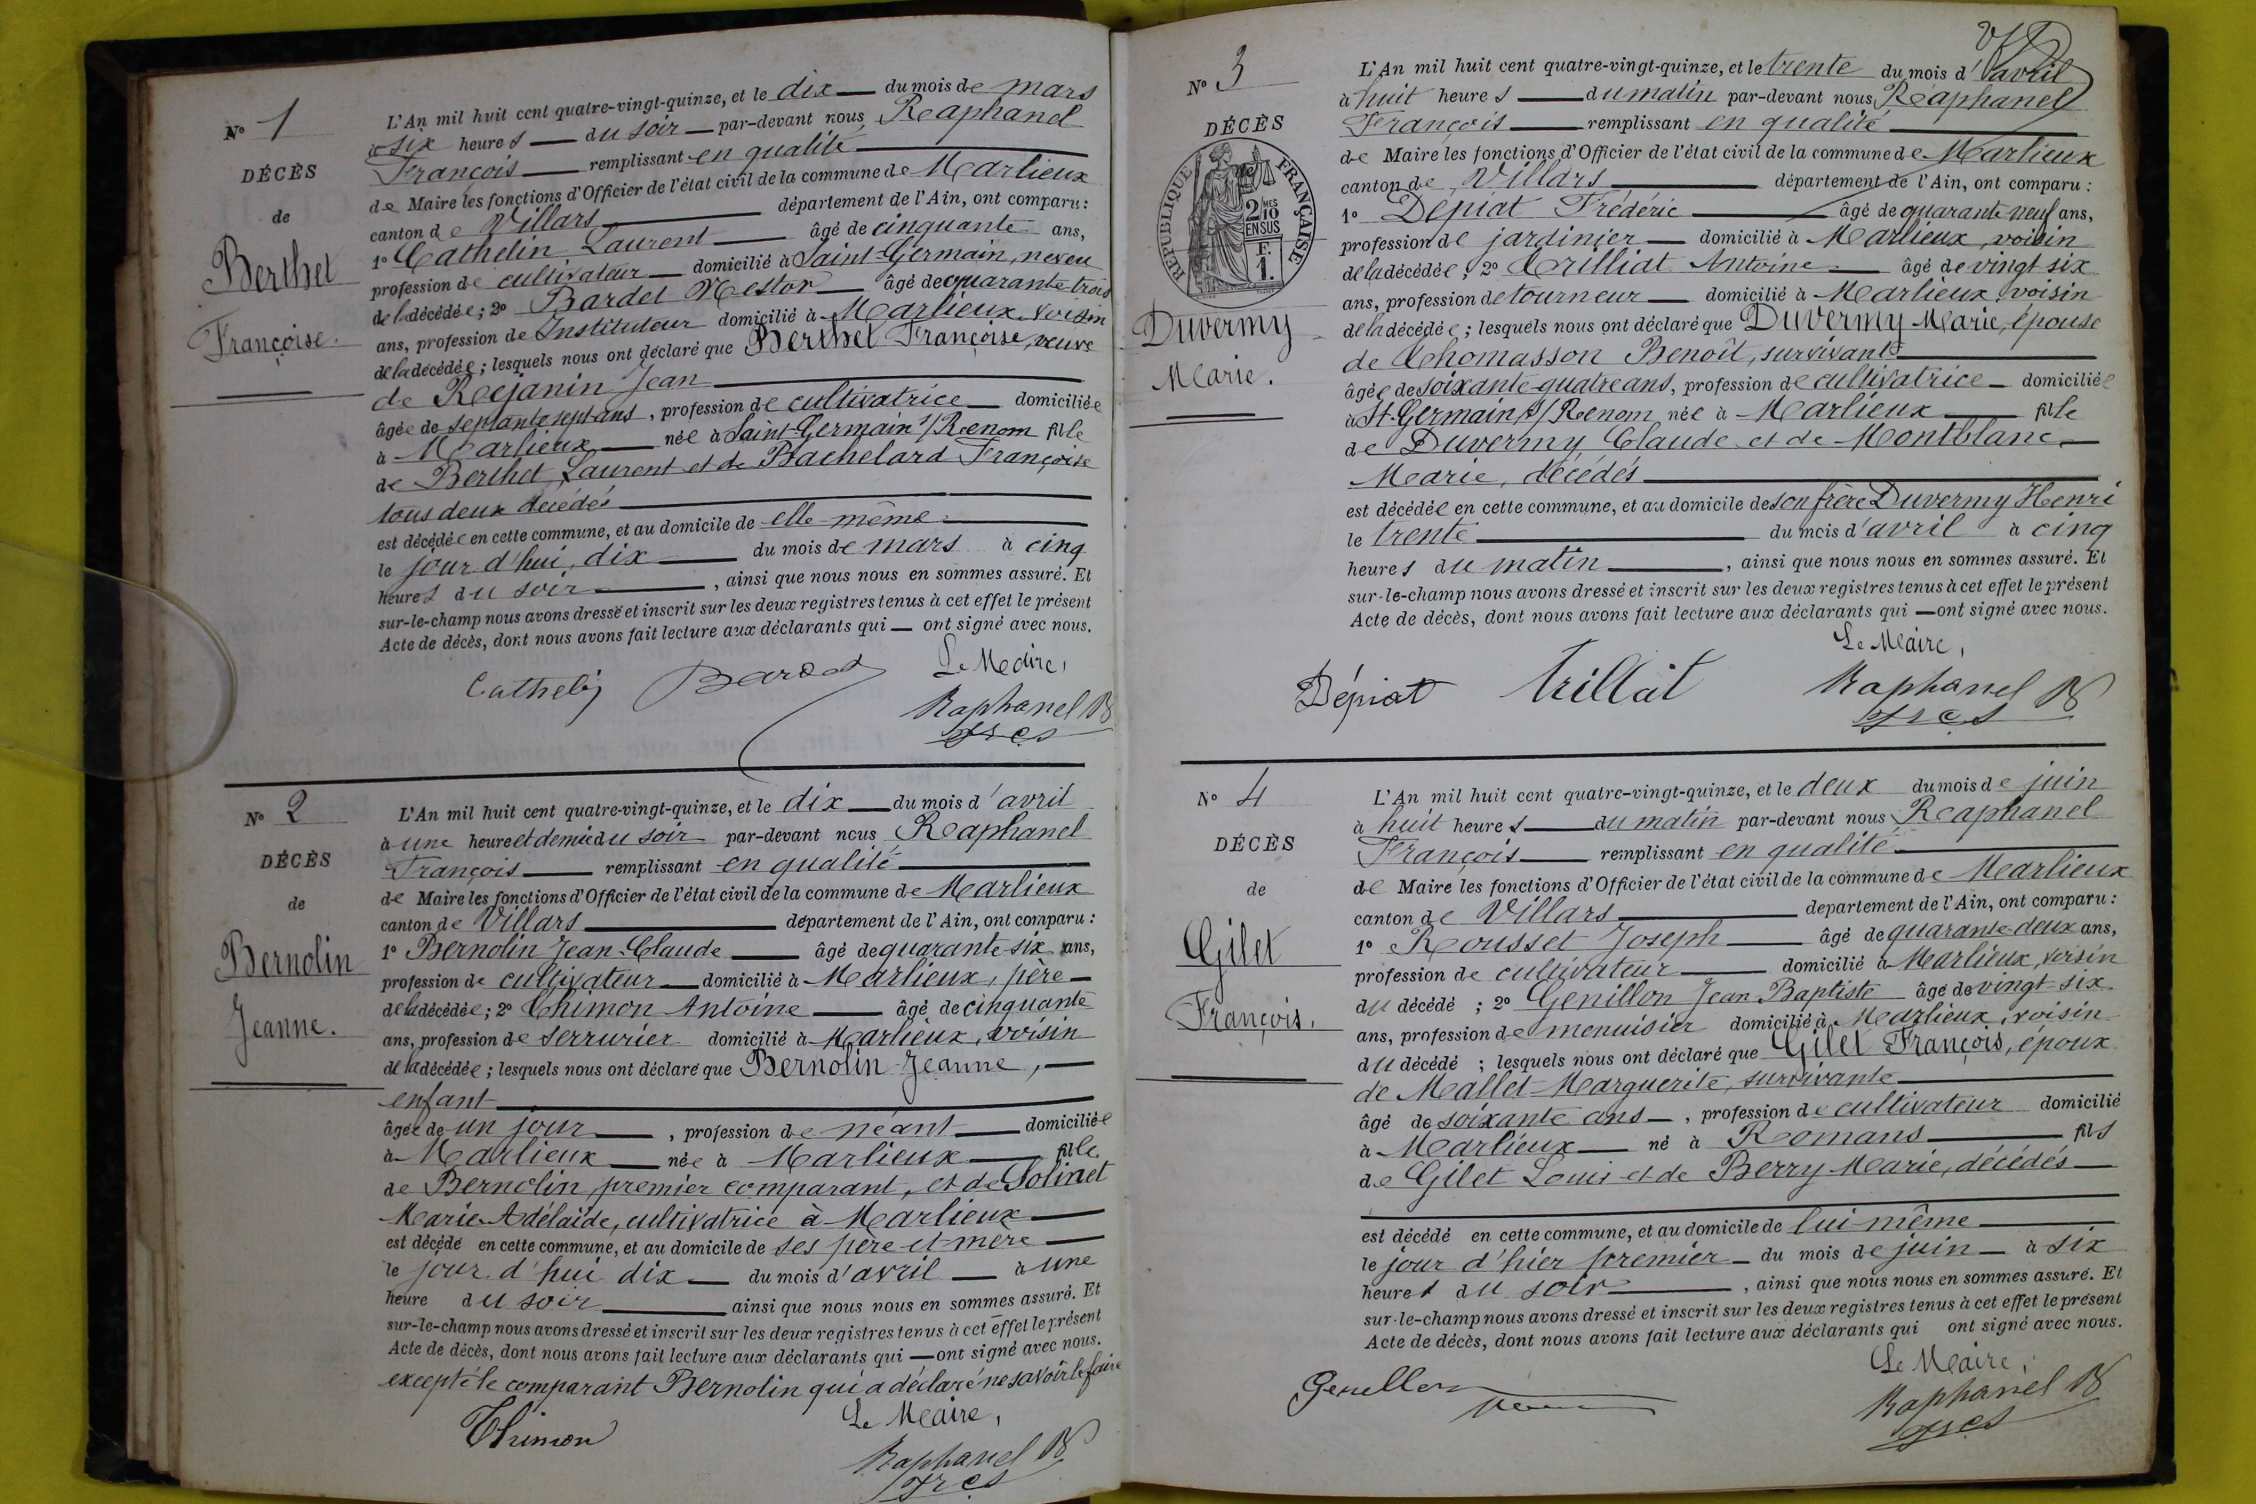 Nº 1
DÉCÈS
de
Berthet
Françoise.
L'An mil huit cent quatre-vingt-quinze, et le dix du mois de mars
à six heures du soir par-devant nous Raphanel
François remplissant en qualité
de Maire les fonctions d'Officier de l'état civil de la commune de Marlieux
canton de Villars département de l'Ain, ont comparu :
1º Cathelin Laurent âgé de cinquante ans,
profession de cultivateur domicilié à Saint-Germain, neveu
de la décédée ; 2º Bardet Nestor âgé de quarante trois
ans, profession de Instituteur domicilié à Marlieux, voisin
de la décédée ; lesquels nous ont déclaré que Berthet Françoise, veuve
de Rejanin Jean
âgée de septante sept ans, profession de cultivatrice domiciliée
à Marlieux née à Saint-Germain s/Renom fille
de Berthet Laurent et de Bachelard Françoise
tous deux décédés
est décédée en cette commune, et au domicile de elle-même
le jour d'hui dix du mois de mars à cinq
heures du soir, ainsi que nous nous en sommes assuré. Et
sur-le-champ nous avons dressé et inscrit sur les deux registres tenus à cet effet le présent
Acte de décès, dont nous avons fait lecture aux déclarants qui ont signé avec nous.
Le Maire,
Cathelin Bardet Raphanel
frçs
Nº 2
DÉCÈS
de
Bernolin
Jeanne.
L'An mil huit cent quatre-vingt-quinze, et le dix du mois d'avril
à une heure et demie du soir par-devant nous Raphanel
François remplissant en qualité
de Maire les fonctions d'Officier de l'état civil de la commune de Marlieux
canton de Villars département de l'Ain, ont comparu :
1º Bernolin Jean-Claude âgé de quarante-six ans,
profession de cultivateur domicilié à Marlieux, père
de la décédée ; 2º Thimon Antoine âgé de cinquante
ans, profession de serrurier domicilié à Marlieux, voisin
de la décédée ; lesquels nous ont déclaré que Bernolin Jeanne,
enfant
âgée de un jour, profession de néant domiciliée
à Marlieux née à Marlieux fille
de Bernolin premier comparant, et de Solinet
Marie Adélaïde, cultivatrice à Marlieux
est décédé en cette commune, et au domicile de ses père et mère
le jour d'hui dix du mois d'avril à une
heure du soir ainsi que nous nous en sommes assuré. Et
sur-le-champ nous avons dressé et inscrit sur les deux registres tenus à cet effet le présent
Acte de décès, dont nous avons fait lecture aux déclarants qui ont signé avec nous.
excepté le comparant Bernolin qui a déclaré ne savoir le faire
Le Maire,
Thimon Raphanel
frçs
Nº 3
DÉCÈS
de
RÉPUBLIQUE FRANÇAISE
2 MES
10
EN SUS
F.
1.
Duvermy
Marie.
L'An mil huit cent quatre-vingt-quinze, et le trente du mois d'avril
à huit heures du matin par-devant nous Raphanel
François remplissant en qualité
de Maire les fonctions d'Officier de l'état civil de la commune de Marlieux
canton de Villars département de l'Ain, ont comparu :
1º Dépiat Frédéric âgé de quarante neuf ans,
profession de jardinier domicilié à Marlieux, voisin
de la décédée ; 2º Trilliat Antoine âgé de vingt six
ans, profession de tourneur domicilié à Marlieux, voisin
de la décédée ; lesquels nous ont déclaré que Duvermy Marie, épouse
de Thomasson Benoît, survivant
âgée de soixante-quatre ans, profession de cultivatrice domiciliée
à St-Germain s/Renom née à Marlieux fille
de Duvermy Claude et de Montblanc
Marie, décédés
est décédée en cette commune, et au domicile de son frère Duvermy Henri
le trente du mois d'avril à cinq
heures du matin, ainsi que nous nous en sommes assuré. Et
sur-le-champ nous avons dressé et inscrit sur les deux registres tenus à cet effet le présent
Acte de décès, dont nous avons fait lecture aux déclarants qui ont signé avec nous.
Le Maire,
Dépiat Trilliat Raphanel
frçs
Nº 4
DÉCÈS
de
Gilet
François.
L'An mil huit cent quatre-vingt-quinze, et le deux du mois de juin
à huit heures du matin par-devant nous Raphanel
François remplissant en qualité
de Maire les fonctions d'Officier de l'état civil de la commune de Marlieux
canton de Villars département de l'Ain, ont comparu :
1º Rousset Joseph âgé de quarante-deux ans,
profession de cultivateur domicilié à Marlieux, voisin
du décédé ; 2º Genillon Jean Baptiste âgé de vingt-six
ans, profession de menuisier domicilié à Marlieux, voisin
du décédé ; lesquels nous ont déclaré que Gilet François, époux
de Mallet Marguerite, survivante
âgé de soixante ans, profession de cultivateur domicilié
à Marlieux né à Romans fils
de Gilet Louis et de Berry Marie, décédés
est décédé en cette commune, et au domicile de lui-même
le jour d'hier premier du mois de juin à six
heures du soir, ainsi que nous nous en sommes assuré. Et
sur-le-champ nous avons dressé et inscrit sur les deux registres tenus à cet effet le présent
Acte de décès, dont nous avons fait lecture aux déclarants qui ont signé avec nous.
Le Maire,
Genillon Raphanel
frçs